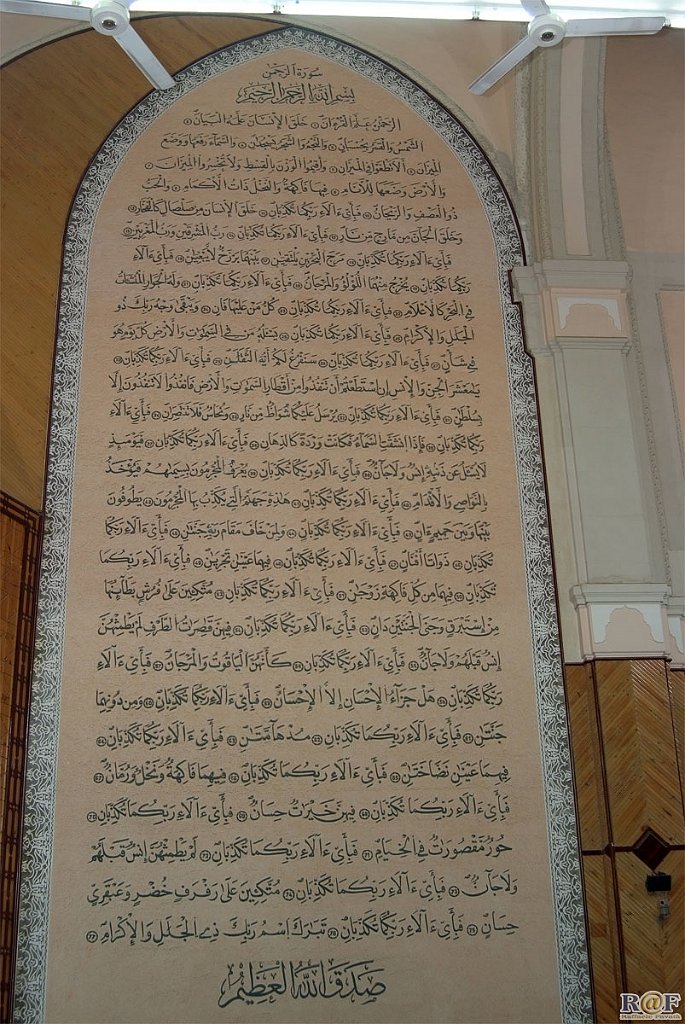 سورة الرحمن
بسم الله الرحمن الرحيم
الرحمن علم القرءان خلق الإنسان علمه البيان
الشمس والقمر بحسبان والنجم والشجر يسجدان والسماء رفعها ووضع
الميزان ألا تطغوا في الميزان وأقيموا الوزن بالقسط ولا تخسروا الميزان
والأرض وضعها للأنام فيها فاكهة والنخل ذات الأكمام والحب
ذو العصف والريحان فبأي ءالاء ربكما تكذبان خلق الإنسان من صلصال كالفخار
وخلق الجان من مارج من نار فبأي ءالاء ربكما تكذبان رب المشرقين ورب المغربين
فبأي ءالاء ربكما تكذبان مرج البحرين يلتقيان بينهما برزخ لا يبغيان فبأي ءالاء
ربكما تكذبان يخرج منهما اللؤلؤ والمرجان فبأي ءالاء ربكما تكذبان وله الجوار المنشئات
في البحر كالأعلام فبأي ءالاء ربكما تكذبان كل من عليها فان ويبقى وجه ربك ذو
الجلل والإكرام فبأي ءالاء ربكما تكذبان يسئله من في السموات والأرض كل يوم هو
في شأن فبأي ءالاء ربكما تكذبان سنفرغ لكم أيه الثقلان فبأي ءالاء ربكما تكذبان
يمعشر الجن والإنس إن استطعتم أن تنفذوا من أقطار السموات والأرض فانفذوا لا تنفذون إلا
بسلطن فبأي ءالاء ربكما تكذبان يرسل عليكما شواظ من نار ونحاس فلا تنتصران فبأي ءالاء
ربكما تكذبان فإذا انشقت السماء فكانت وردة كالدهان فبأي ءالاء ربكما تكذبان فيومئذ
لا يسئل عن ذنبه إنس ولا جان فبأي ءالاء ربكما تكذبان يعرف المجرمون بسيمهم فيؤخذ
بالنواصي والأقدام فبأي ءالاء ربكما تكذبان هذه جهنم التي يكذب بها المجرمون يطوفون
بينها وبين حميم ءان فبأي ءالاء ربكما تكذبان ولمن خاف مقام ربه جنتان فبأي ءالاء ربكما
تكذبان ذواتا أفنان فبأي ءالاء ربكما تكذبان فيهما عينان تجريان فبأي ءالاء ربكما
تكذبان فيهما من كل فاكهة زوجان فبأي ءالاء ربكما تكذبان متكئين على فرش بطائنها
من إستبرق وجنى الجنتين دان فبأي ءالاء ربكما تكذبان فيهن قصرات الطرف لم يطمثهن
إنس قبلهم ولا جان فبأي ءالاء ربكما تكذبان كأنهن الياقوت والمرجان فبأي ءالاء
ربكما تكذبان هل جزاء الإحسان إلا الإحسان فبأي ءالاء ربكما تكذبان ومن دونهما
جنتان فبأي ءالاء ربكما تكذبان مدهامتان فبأي ءالاء ربكما تكذبان
فيهما عينان نضاختان فبأي ءالاء ربكما تكذبان فيهما فاكهة ونخل ورمان
فبأي ءالاء ربكما تكذبان فيهن خيرات حسان فبأي ءالاء ربكما تكذبان
حور مقصورات في الخيام فبأي ءالاء ربكما تكذبان لم يطمثهن إنس قبلهم
ولا جان فبأي ءالاء ربكما تكذبان متكئين على رفرف خضر وعبقري
حسان فبأي ءالاء ربكما تكذبان تبرك اسم ربك ذي الجلل والإكرام
صدق الله العظيم
R@F